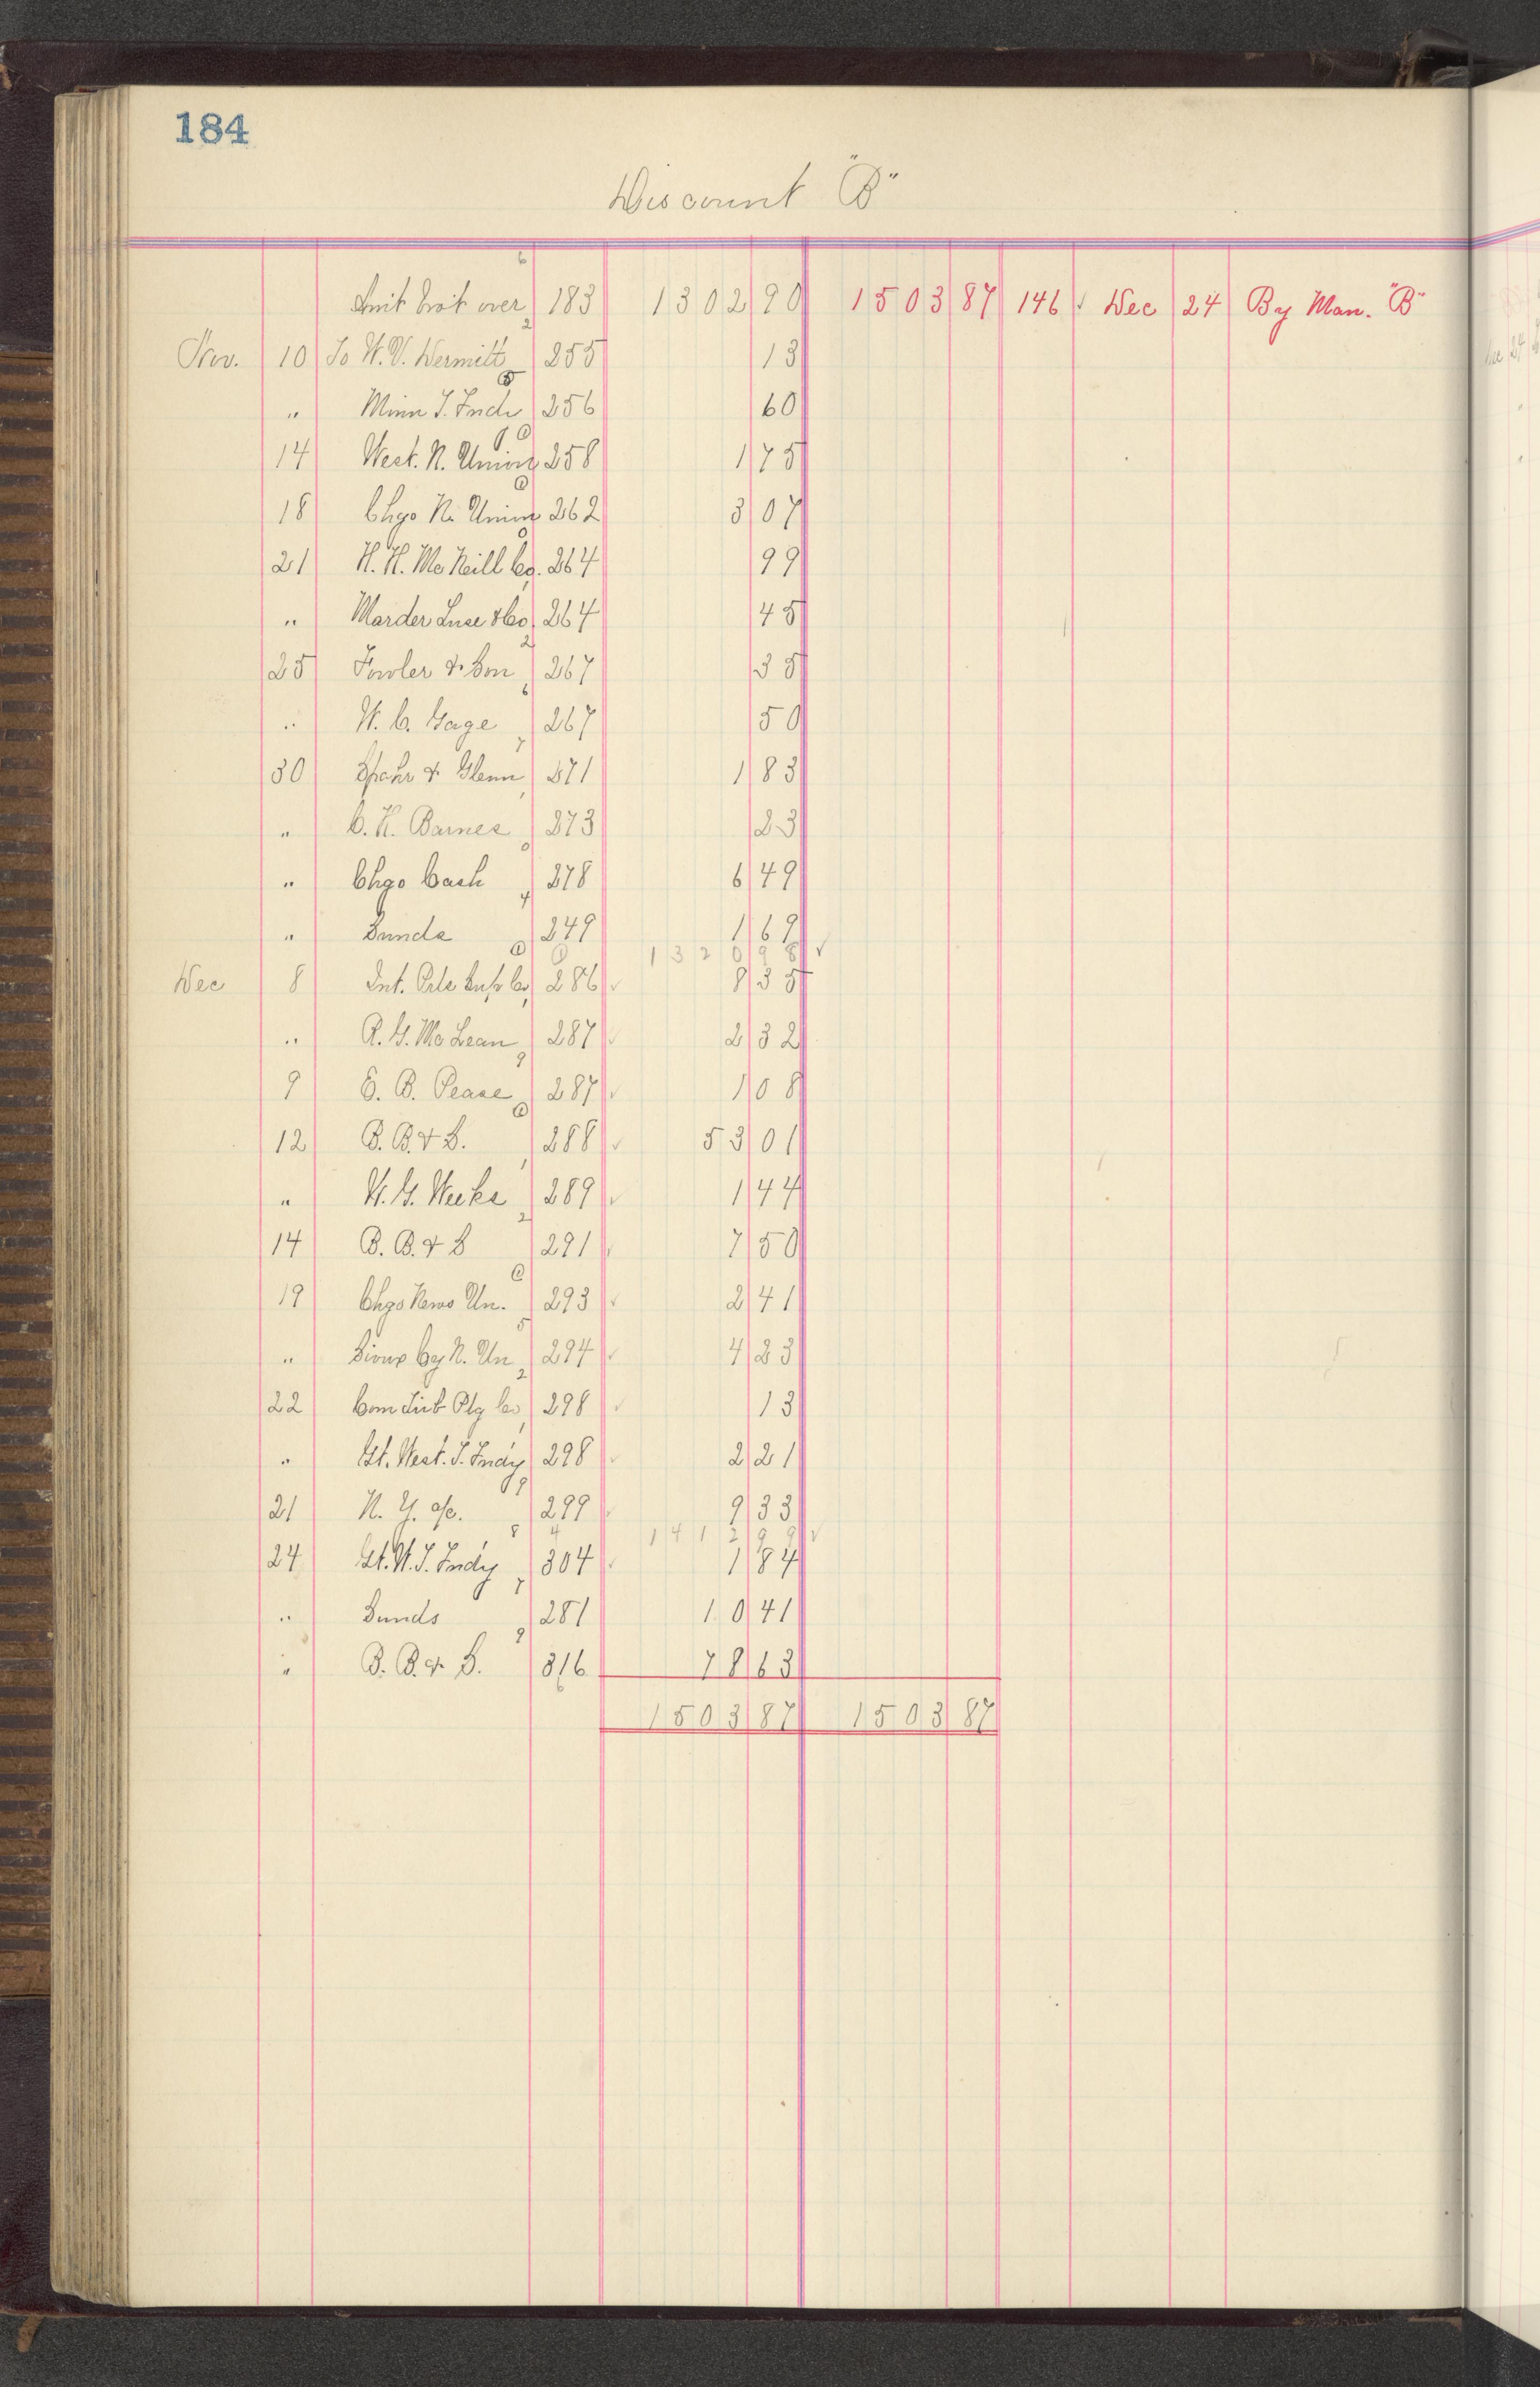 184
Discount "B"
Amt brot over 183 1302 90 1503 87 146 Dec 24 By Man. "B"
Nov. 10 To W. V. Dermitt 255 13
" Minn T. Indr 256 60
14 West. N. Union 258 1 75
18 Chgo N. Union 262 3 07
21 H. H. McNeill Co. 264 99
" Marder Luse & Co 264 45
25 Fowler & Son 267 35
" W. C. Gage 267 50
30 Spahr & Glenn 271 1 83
" C. H. Barnes 273 23
" Chgo Cash 278 6 49
" Sunds 249 1 69
1320 98
Dec 8 Int. Co 286 9 35
" A. G. McLean 287 2 32
9 E. B. Pease 287 1 08
12 B. B. & S. 288 53 01
" W. G. Weeks 289 1 44
14 B. B. & S 291 7 50
19 Chgo News Un. 293 2 41
" Sioux Cy N. Un 294 4 23
22 Com Ptg Co 298 13
" Gt. West. T. Indy 298 2 21
21 N. Y. a/c. 299 9 33
1412 99
24 Gt. W. T. Indy 304 1 84
" Sunds 281 10 41
" B. B. & S. 316 78 63
1503 87 1503 87